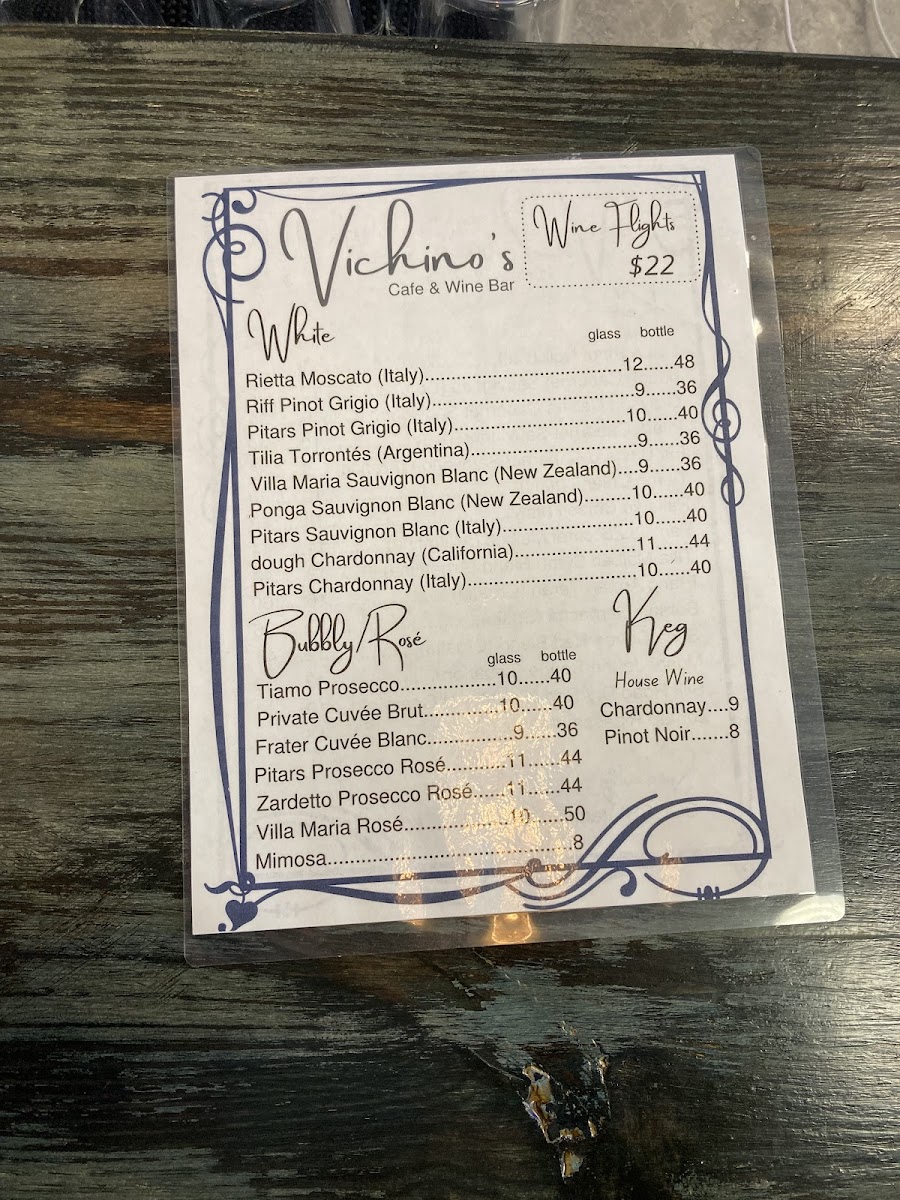 Vichino's
Cafe & Wine Bar
Wine Flights
$22
White
glass bottle
Rietta Moscato (Italy)......12......48
Riff Pinot Grigio (Italy)......9......36
Pitars Pinot Grigio (Italy)......10......40
Tilia Torrontés (Argentina)......9......36
Villa Maria Sauvignon Blanc (New Zealand)....9......36
Ponga Sauvignon Blanc (New Zealand).........10......40
Pitars Sauvignon Blanc (Italy)......10......40
dough Chardonnay (California)......11......44
Pitars Chardonnay (Italy)......10......40
Bubbly/Rosé
glass bottle
Tiamo Prosecco......10......40
Private Cuvée Brut......10......40
Frater Cuvée Blanc......9......36
Pitars Prosecco Rosé......11......44
Zardetto Prosecco Rosé......11......44
Villa Maria Rosé......10......50
Mimosa......8
Keg
House Wine
Chardonnay....9
Pinot Noir.......8